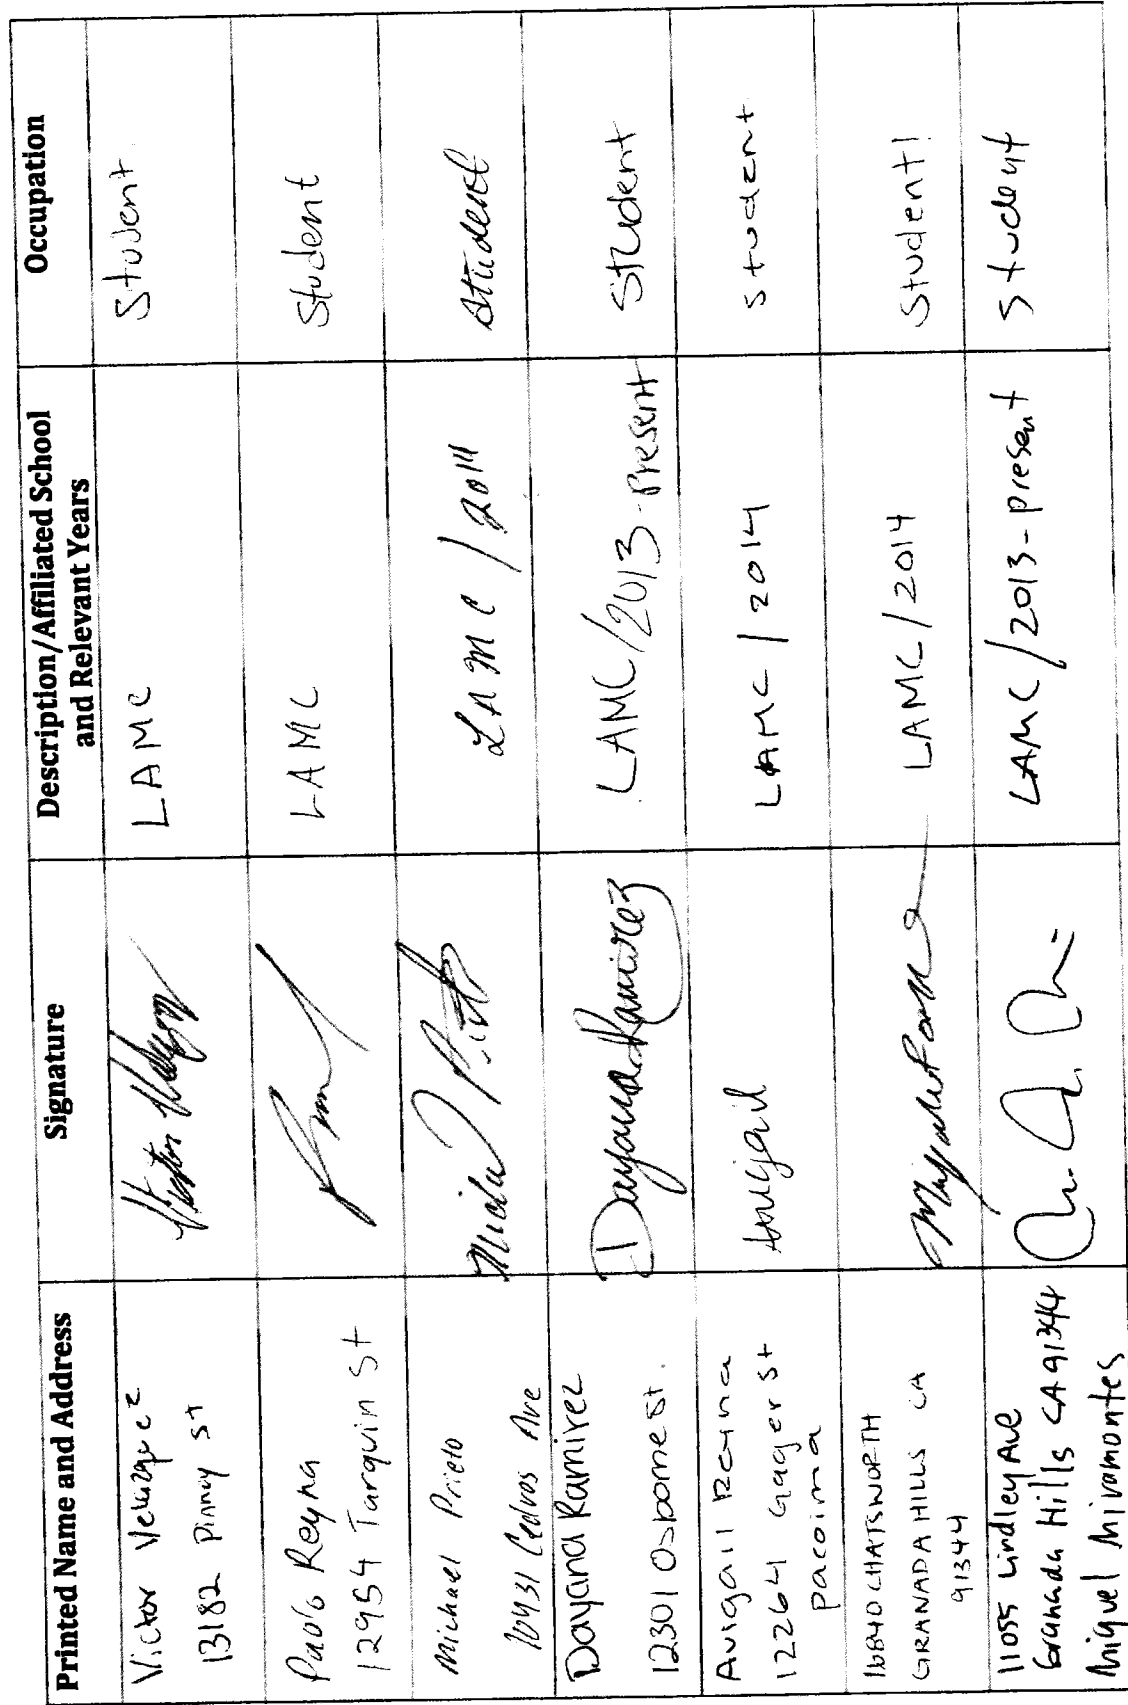 Printed Name and Address
Signature
Description/Affiliated School
and Relevant Years
Occupation
Victor Velazquez
13182 Pinney St
LAMC
Student
Pablo Reyna
12954 Tarquin St
LAMC
Student
Michael Prieto
10431 Cedros Ave
Michael Prieto
LAMC / 2014
Student
Dayana Ramirez
12301 Osborne St.
Dayana Ramirez
LAMC/2013-Present
Student
Avigail Reyna
12264 Gager St
Pacoima
Avigail
LAMC / 2014
student
16840 CHATSWORTH
GRANADA HILLS CA
91344
LAMC / 2014
Student!
11055 Lindley Ave
Granada Hills CA 91344
Miguel Miramontes
LAMC / 2013-present
Student